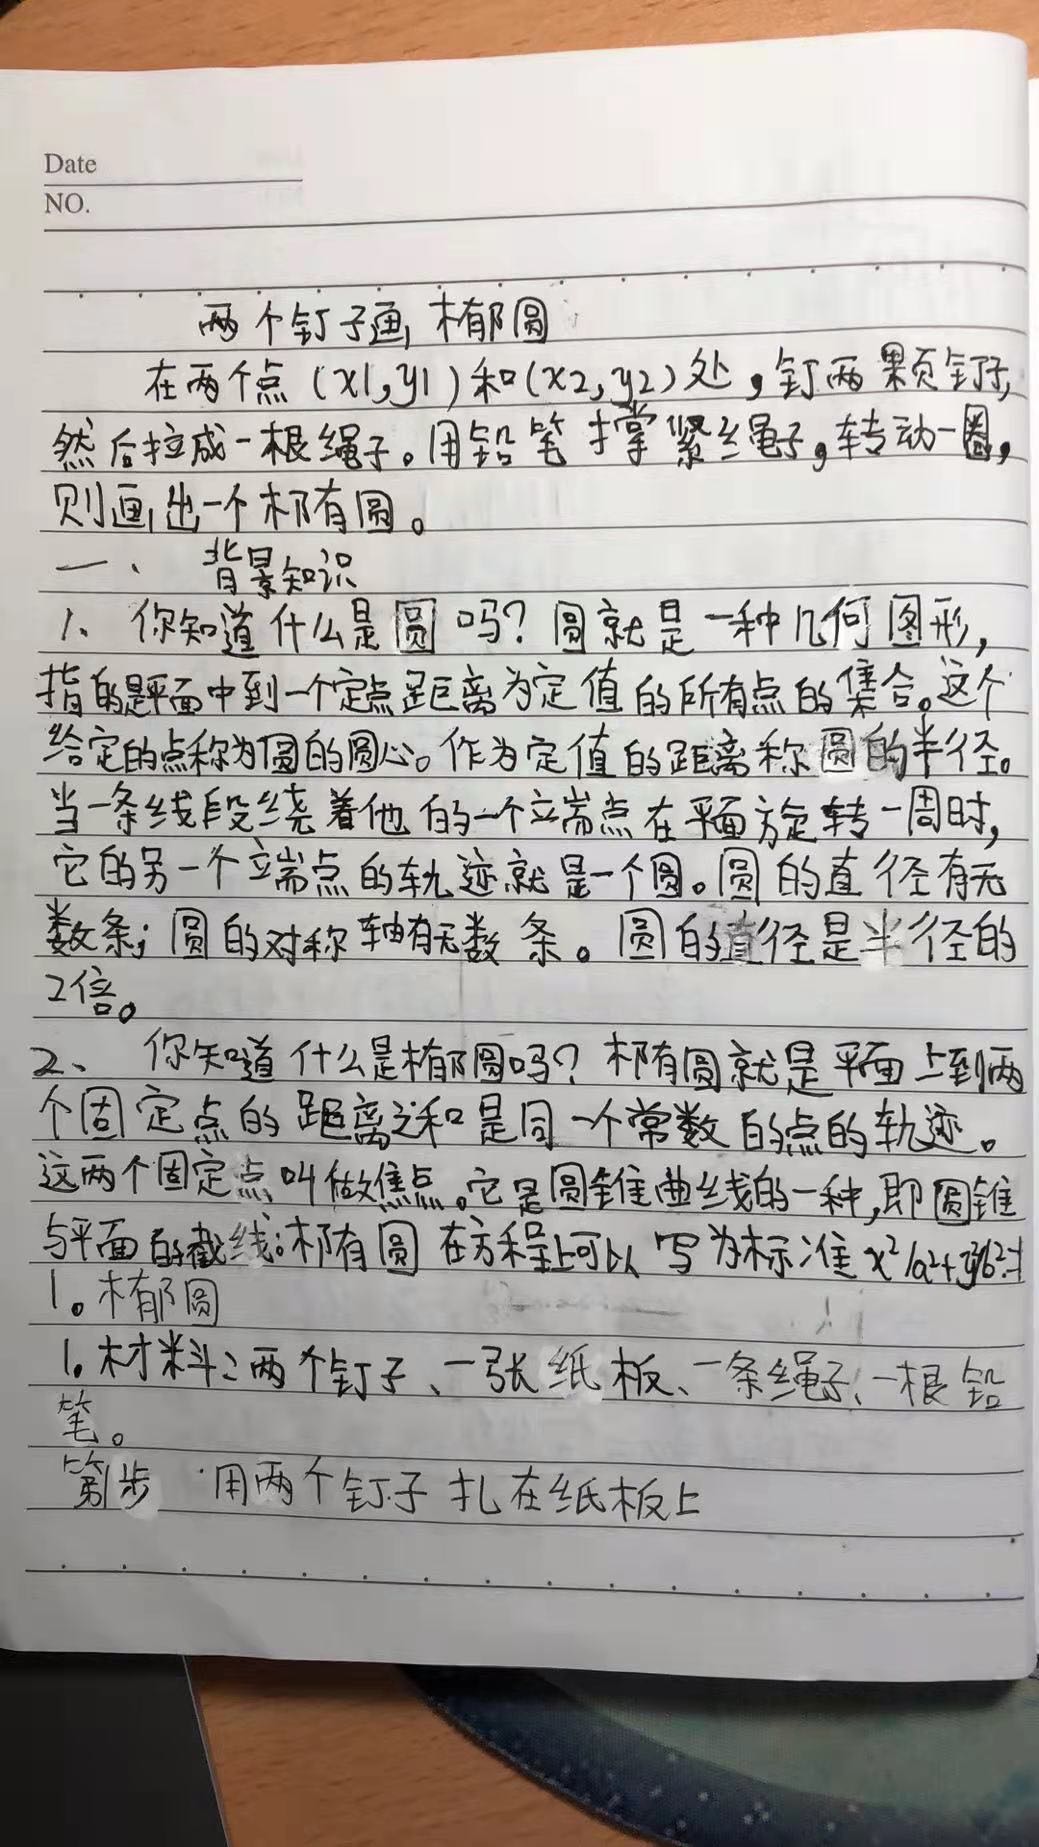 Date
NO.
两个钉子画椭圆
在两个点(x1,y1)和(x2,y2)处,钉两颗钉子,
然后拉成一根绳子。用铅笔撑紧绳子,转动一圈,
则画出一个椭圆。
一、背景知识
1、你知道什么是圆吗?圆就是一种几何图形,
指的是平面中到一个定点距离为定值的所有点的集合。这个
给定的点称为圆的圆心。作为定值的距离称圆的半径。
当一条线段绕着他的一个端点在平面旋转一周时,
它的另一个端点的轨迹就是一个圆。圆的直径有无
数条;圆的对称轴有无数条。圆的直径是半径的
2倍。
2、你知道什么是椭圆吗?椭圆就是平面上到两
个固定点的距离之和是同一个常数的点的轨迹。
这两个固定点叫做焦点。它是圆锥曲线的一种,即圆锥
与平面的截线。椭圆在方程上可以写为标准x²/a²+y²/b²=1
1。椭圆
1。材料:两个钉子、一张纸板、一条绳子、一根铅
笔。
第1步 用两个钉子扎在纸板上